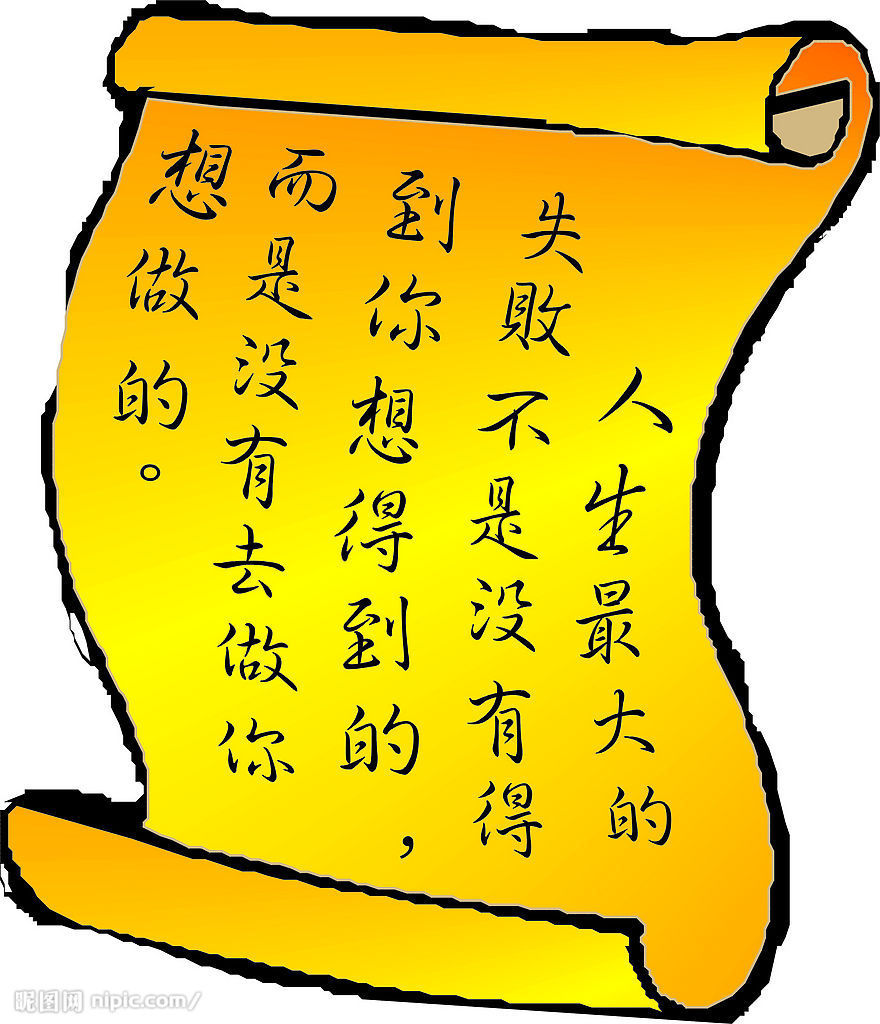 人生最大的
失敗不是没有得
到你想得到的，
而是没有去做你
想做的。
昵图网 nipic.com/